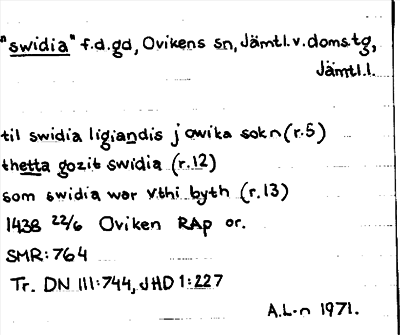 "swidia" f.d.gd, Ovikens sn, Jämtl.v.doms.tg,
Jämtl.l.
til swidia ligiandis j owika sokn (r.5)
thetta gozit swidia (r.12)
som swidia war vthi byth (r.13)
1438 22/6 Oviken RAp or.
SMR:764
Tr. DN III:744, JHD 1:227
A.L-n 1971.